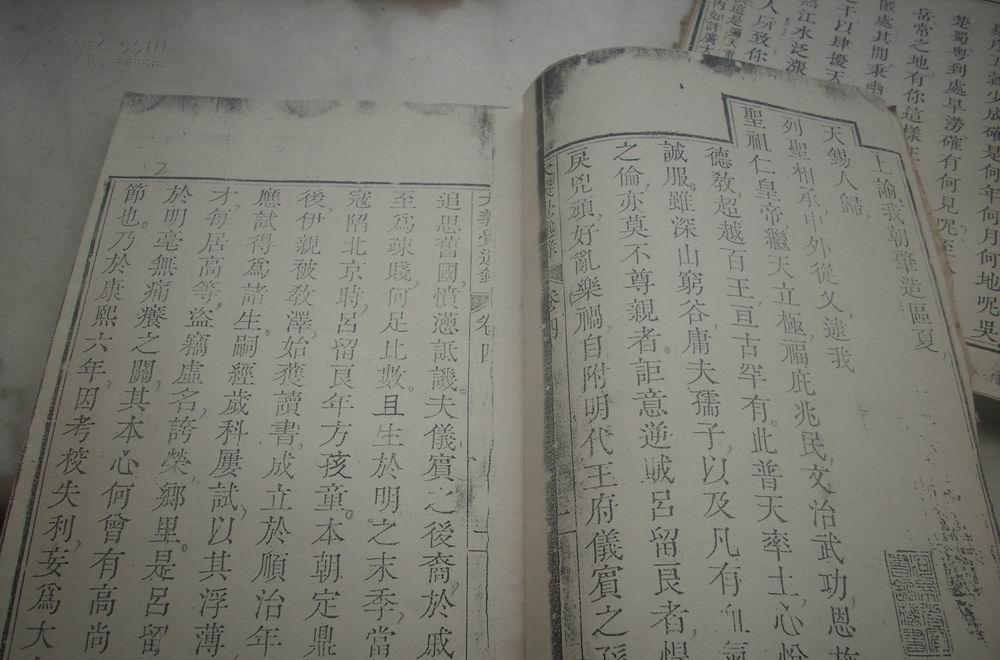 上諭我朝肇造區夏,
天錫人歸,
列聖相承中外從乂,逮我
聖祖仁皇帝,繼天立極,福庇兆民,文治武功,恩
德教超越百王,亘古罕有。此普天率土,心悅
誠服。雖深山窮谷,庸夫孺子,以及凡有血氣
之倫,亦莫不尊親者。詎意逆賊呂留良者,悍
戾兇頑,好亂樂禍,自附明代王府儀賓之孫
大義覺迷錄 卷四 一
追思舊國,憤懣詆譏,夫儀賓之後裔,於戚
至為疎賤,何足比數。且生於明之末季,當
寇陷北京時,呂留良年方孩童。本朝定鼎
後,伊親被教澤,始獲讀書,成立於順治年
應試得為諸生。嗣經歲科屢試,以其浮薄
才,每居高等,盜竊虛名,誇榮鄉里。是呂留
於明毫無痛癢之關,其本心何曾有高尚
節也。乃於康熙六年,因考校失利,妄為大
2
楚蜀粵到處旱澇確有何見呢
岳常之地有你這樣
匿處其間秉幽
之干以肆擾天
然江水泛漲
人所致你
少成確是何年何月何地呢吳